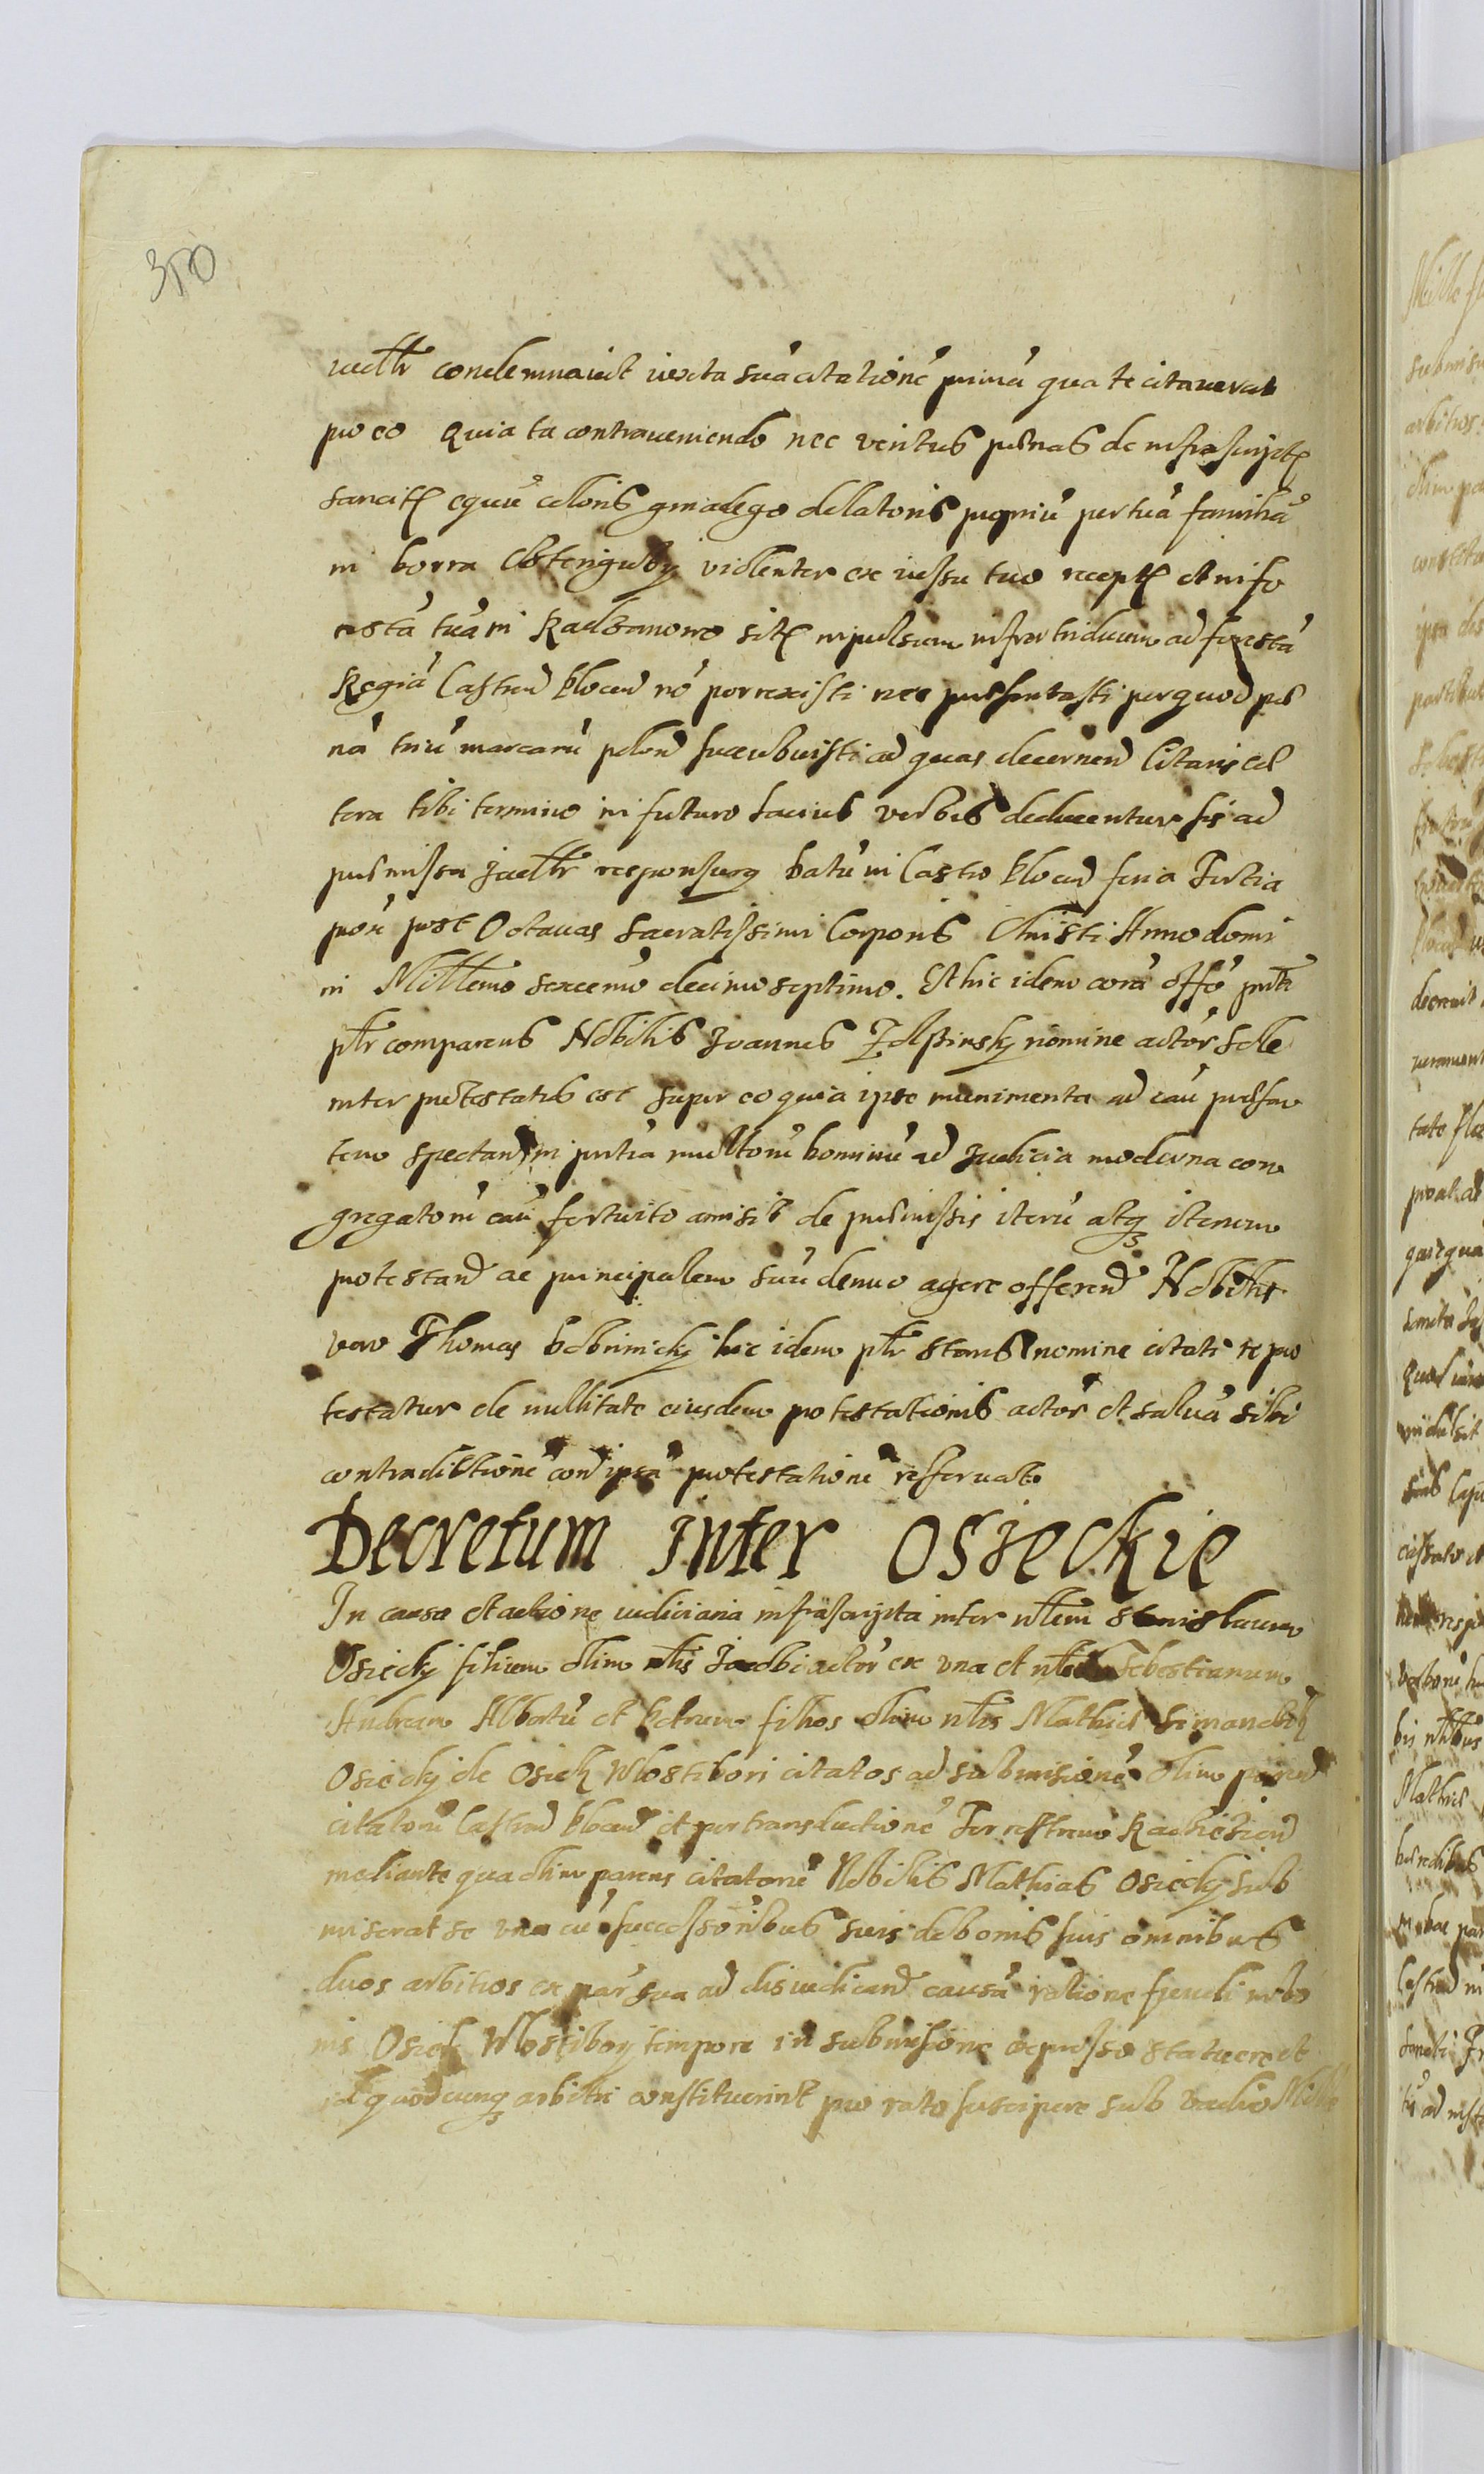 350
iudltr condemnavit iuxta suã citationẽ primã qua te citaverat
pro eo Quia tu contraveniendo nec veritus pœnas de infrascript
sancit equũ coloris gniadego dellatoris propriũ per tuã familiã
in borra violenter ex iussu tuo recept et in fo
restã tuã in Radzanowo sit impulsum infra triduum ad forestã
Regiã Castren Plocen nõ porrexisti nec præsentasti per quod pœ
nã triũ marcarũ polon succubuisti ad quas decernend Citaris cæ
tera tibi termino in futuro latius verbis deducentur sis ad
præmissa judltr responsurq Datũ in Castro Plocen feria Tertia
prox post Octavas Sacratissimi Corporis Christi Anno domi
ni Millemo sexcenmo decimo septimo. Et hic idem corã offo pntr
pltr comparens Nobilis Joannes nomine actor sole
niter protestatus est super eo quia ipse munimenta ad cau præsen
tem spectand in pntia multorũ hominũ ad judicia moderna con
gregatorũ fortuito amisit de præmissis iterũ atq iterum
protestand ac principalem suũ denuo agere offerend Nobilis
vero Thomas Dobrinicky hic idem pltr stans nomine citati re pro
testatur de nullitate eiusdem protestationis actor et salvã sibi
contradictionẽ con ipsã protestationẽ reservat
Decretum inter Osieckie
In causa et actione iudiciaria infrascripta inter nblem Stanislaum
Osiecky filium olim nblis Jacobi actor ex una et nbles Sebestianum
Andream Albertũ et Petrum filios olim nblis Mathiæ
Osiecky de Osiek Wlostibori citatos ad submisionẽ olim paren
citatorũ Castren Plocen et per transductionẽ Terrestrem Raciæsien
mediante qua olim parens citatorũ Nobilis Mathias Osiecky sub
miserat se una cũ successoribus suis de bonis suis omnibus
duos arbitros ex par sua ad disiudicand causã ratione in bo
nis Osiek Wlostibory tempore in submisione expresso statuere et
id quodcunq arbitri constituerint pro rato suscipere sub vadio Mille